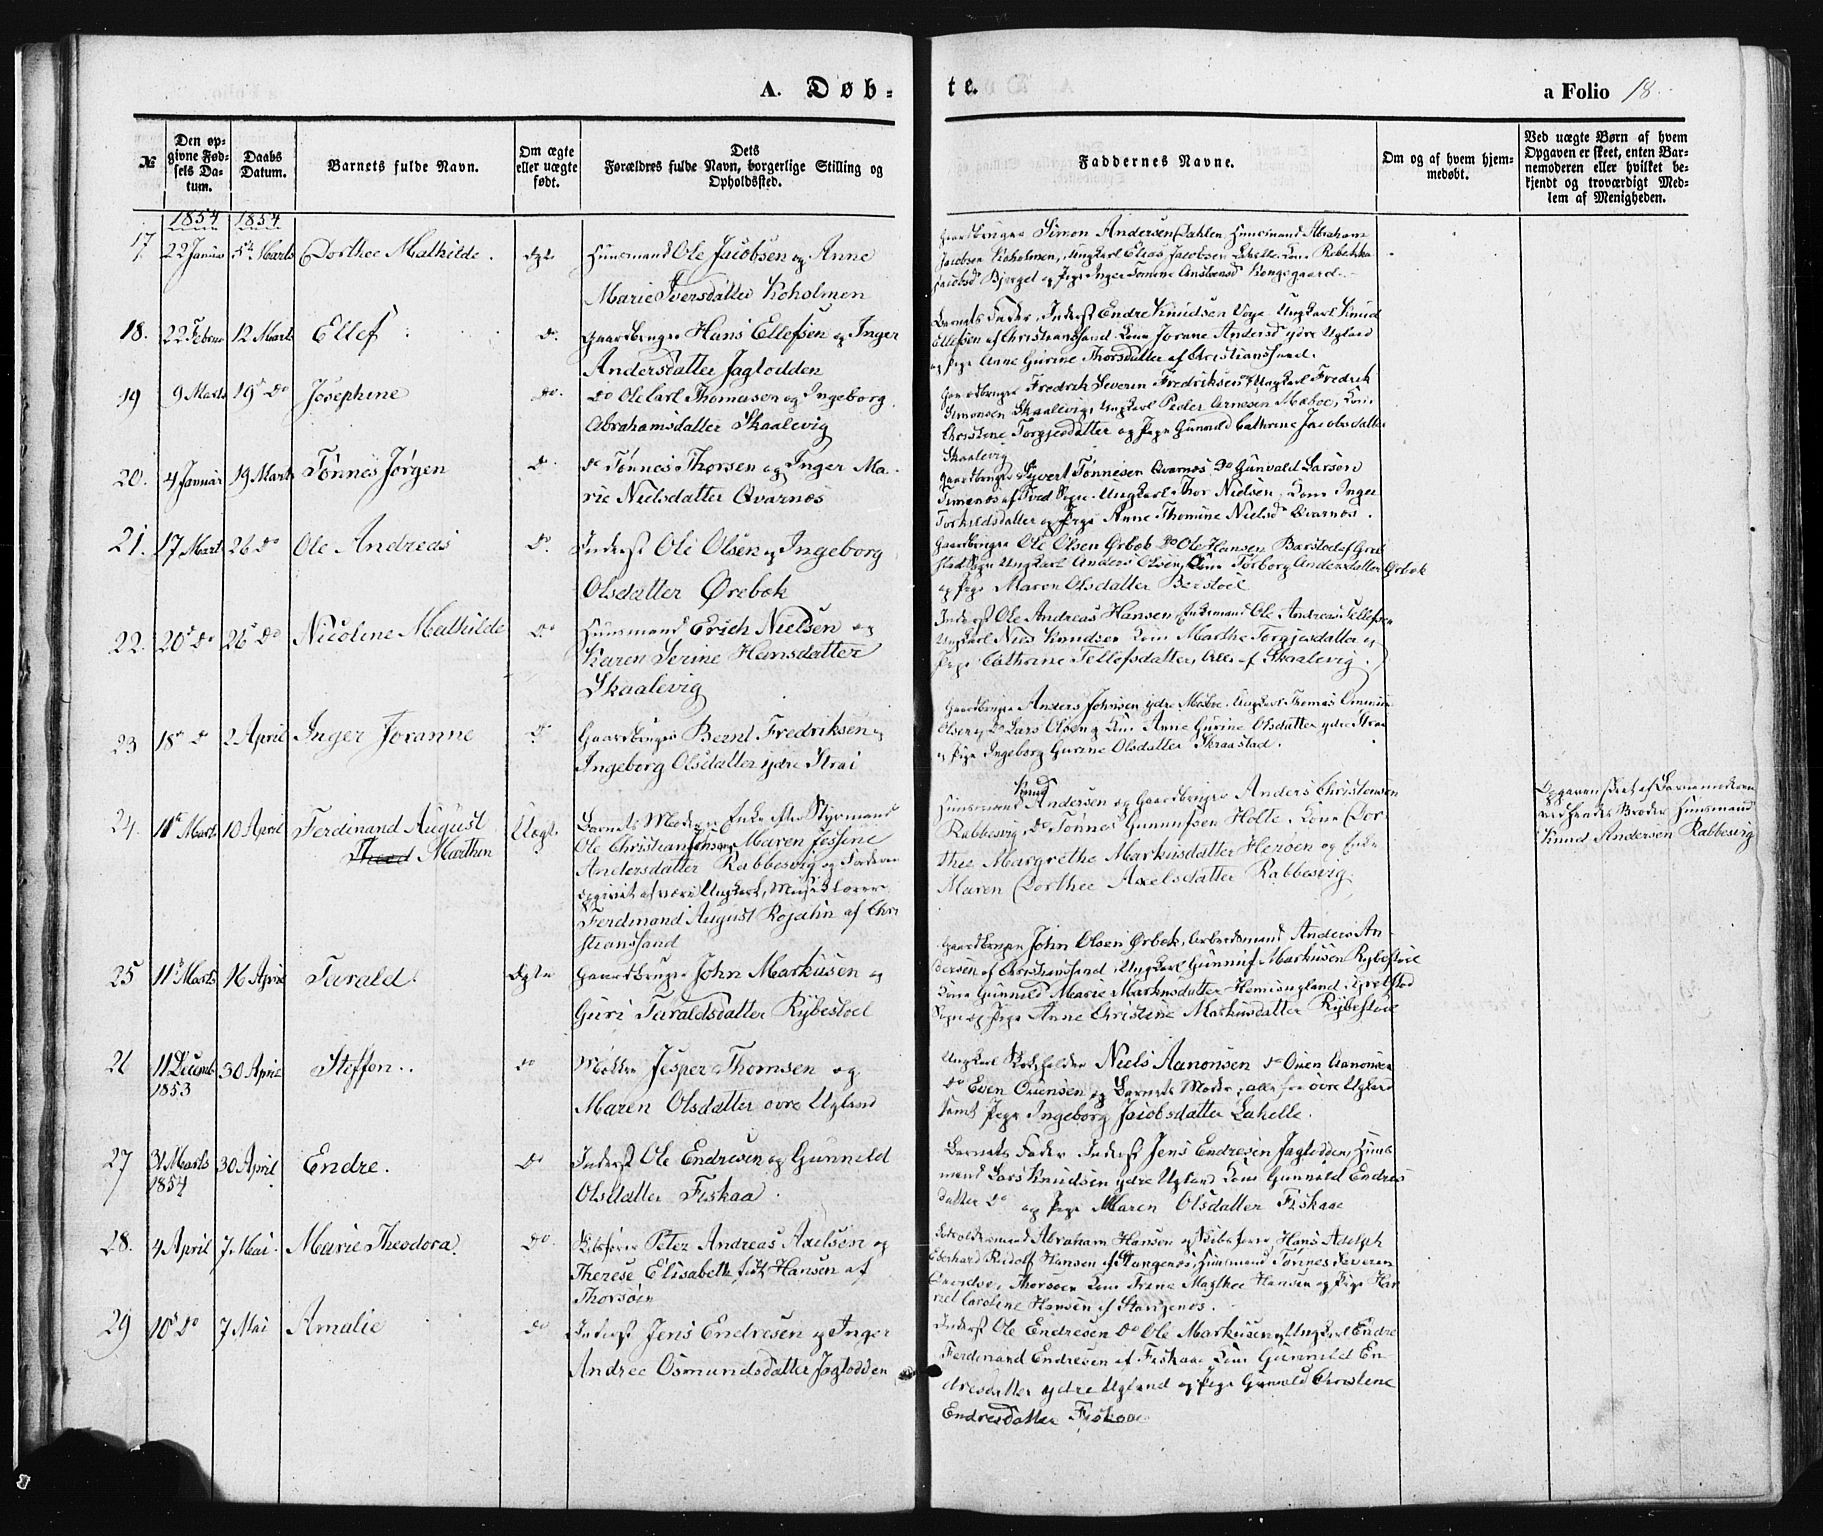 A. Døb-
te.
a Folio 18.
№
Den opgivne Fødsels Datum.
Daabs Datum.
Barnets fulde Navn.
Om ægte eller uægte født.
Dets Forældres fulde Navn, borgerlige Stilling og Opholdssted.
Faddernes Navne.
Om og af hvem hjemmedøbt.
Ved uægte Børn af hvem Opgaven er skeet, enten Barnemoderen eller hvilket bekjendt og troværdigt Medlem af Menigheden.
1854 1854
17 22 Januar 5te Marts Dorthee Mathilde. Ægte Huusmand Ole Jacobsen og Anne
Marie Iversdatter Koholmen
Gaardbruger Simon Andersen Dahlen, Huusmand Abraham
Jacobsen Koholmen, Ungkarl Elias Jacobsen Lahelle Kone Rebekka
18. 22 Februar 12 Marts Ellef do. Gaardbruger Hans Ellefsen og Inger
Andersdatter Jaglodden
Barnets Fader, Inderst Endre Knudsen Voye Ungkarl Knud
Ellefsen af Christianssand Kone Jorane Andersd ydre Ugland
og Pige Anne Gurine Thorsdatter af Christianssand.
19 9 Marts 19 do Josephine do. do Ole Carl Thomesen og Ingeborg
Abrahamsdatter Skaalevig
Gaardbruger Fredrik Severin Fredriksen Ungkarl Fredrik
Simonsen Skaalevig, Ungkarl Peder Arnesen Mæboe, Kone
Christine Torgjesdatter og Pige Gunnild Cathrine Jacobsdatter
Skaalevig
20. 4 Januar 19 Marts Tønnes Jørgen do. do Tønnes Thorsen og Inger Ma-
rie Nielsdatter Qvarnes
Gaardbruger Syvert Tønnesen Qvarnes do Gunvald Larsen
Ungkarl Thor Nielsen, Kone Inger
Torkildsdatter og Pige Anne Thomine Nielsd Qvarnes.
21. 17 Mart 26 do Ole Andreas do. Inderst Ole Olsen og Ingeborg
Olsdatter Ørebek
Gaardbruger Ole Olsen Ørbek do Ole Hansen
Ungkarl Anders Olsen, Kone Torborg Andersdatter Ørbek
og Pige Maren Olsdatter Berstøel
22. 20 do 26 do Nicoline Mathilde do Huusmand Erich Nielsen og
Karen Serine Hansdatter
Skaalevig
Inderst Ole Andreas Hansen, Enkemand Ole Andreas Tellefsen
Ungkarl Niels Knudsen Kone Marthe Torgjesdatter og
Pige Cathrine Tellefsdatter, Alle af Skaalevig.
23 18 do 2 April Inger Joranne do Gaardbruger Bernt Fredriksen og
Ingeborg Olsdatter ydre Strai
Gaardbruger Anders Johnsen ydre Mosbye, Ungkarl Thomas
Olsen, do Lars Olsen og Kone Anne Gurine Olsdatter ydre Strai
og Pige Ingeborg Gurine Olsdatter Skraastad.
24. 11te Mart 10 April Ferdinand August
Marthin
Uægte Barnets Moder er Enke efter Styrmand
Ole Christian Jensen, Maren Josine
Andersdatter Rabbesvig og Faderen
opgivet at være Ungkarl, Musicklærer
Ferdinand August Rojahn af Chri
stianssand
Huusmand Knud Andersen og Gaardbruger Anders Christensen
Rabbesvig, do Tønnes Gunnufsen Holte, Kone Dor-
thee Margrethe Markusdatter Herøen og Enke
Maren Dorthee Axelsdatter Rabbesvig.
Opgaven skeet af Barnemoderen
ved hendes Broder Huusmand
Knud Andersen Rabbesvig
25 11te Marts 16 April Tarald. Ægte Gaardbruger John Markusen og
Guri Taraldsdatter Rybestoel
Gaardbruger John Olsen Ørbek, Arbeidsmand Anders An-
dersen af Christianssand, Ungkarl Gunnuf Markusen Rybestoel
Kone Gunnild Marie Markusdatter
Sogn og Pige Anne Christine Markusdatter Rybestoel
26 11 Decemb 1853 30 April Steffen.. do Jesper Thomsen og
Maren Olsdatter øvre Ugland
Ungkarl Niels Aanonsen do Even Aanonsen
do Even Evensen og Barnets Moder, alle fra øvre Ugland
samt Pige Ingeborg Jacobsdatter Lahelle.
27 31 Marts 1854 30 April Endre. do Inderst Ole Endresen og Gunnild
Olsdatter Fiskaa.
Barnets Fader, Inderst Jens Endresen Jaglodden, Huus-
mand Lars Knudsen ydre Ugland Kone Gunnild Endres
datter do og Pige Maren Olsdatter Fiskaae
28. 4 April 7 Mai. Marie Theodora. do. Skibsfører Peter Andreas Axelsen og
Therese Elisabeth født Hansen af
Thorsøen
Abraham Hansen og Skibsfører Hans Adolph
Eberhard Rudolf Hansen af Stangenes, Huusmand Tønnes Severin
Thorsøen Kone Trine Magthee Hansen og Pige Har
riet Caroline Hansen af Stangenes.
29 10 do 7 Mai Amalie do Inderst Jens Endresen og Inger
Andree Osmundsdatter Jaglodden
Inderst Ole Endresen do Ole Markusen, Ungkarl Endre
Ferdinand Endresen af Fiskaae Kone Gunnild En-
dresdatter ydre Ugland og Pige Gunvald Christine
Endresdatter Fiskaae